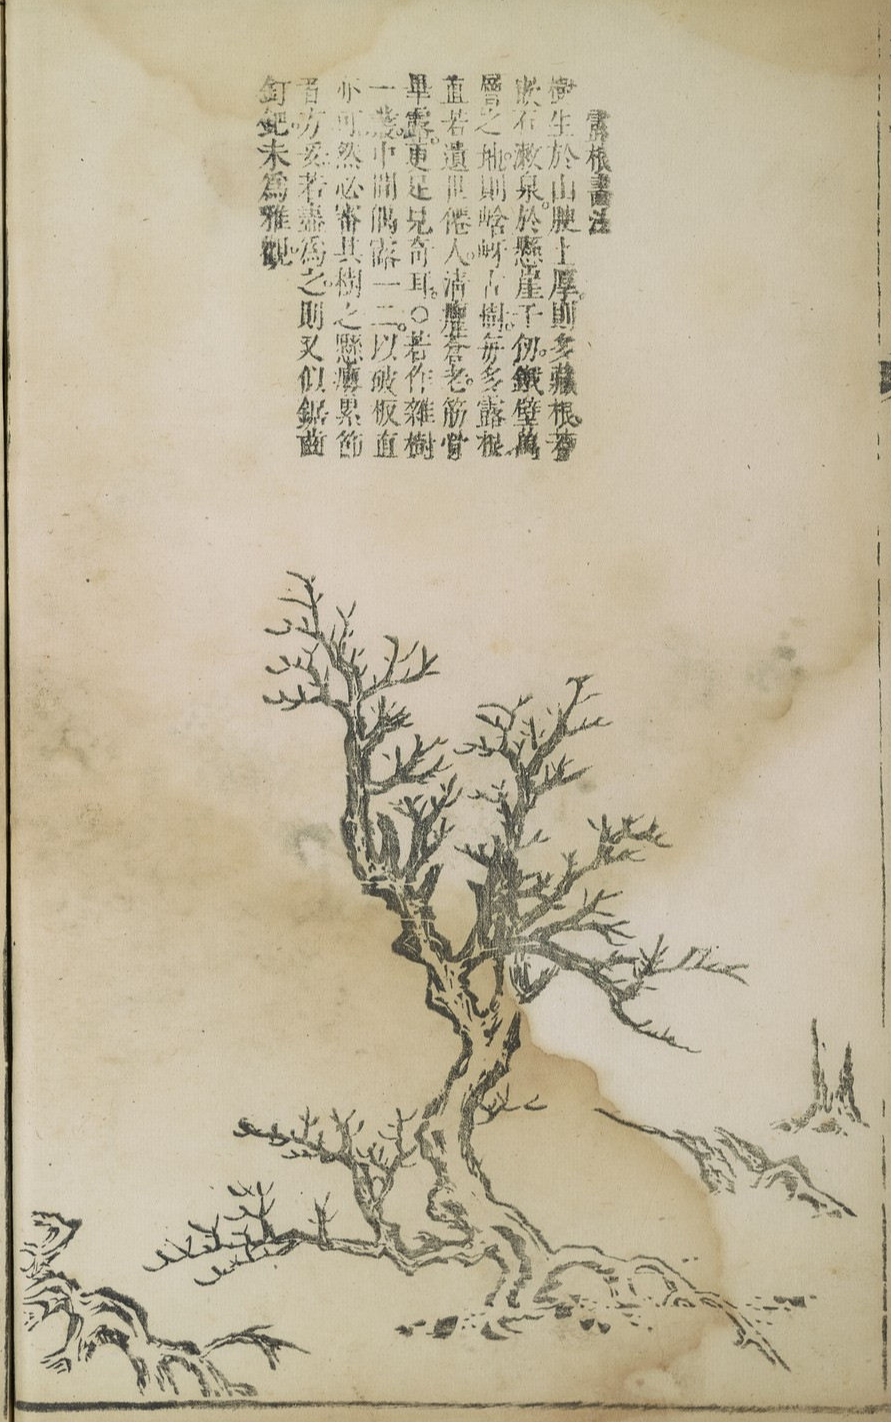 露根畫法
樹生於山腴土厚。則多藏根。若
嵌石漱泉。於懸崖千仞。鐵壁萬
層之地。則㟏岈古樹。每多露根。
直若遺世僊人。清癯蒼老。筋骨
畢露。更足見奇耳。○若作雜樹
一叢。中間偶露一二。以破板直
亦可。然必審其樹之懸癭累節
者。方妥。若盡爲之。則又似鋸齒
釘鈀。未爲雅觀。